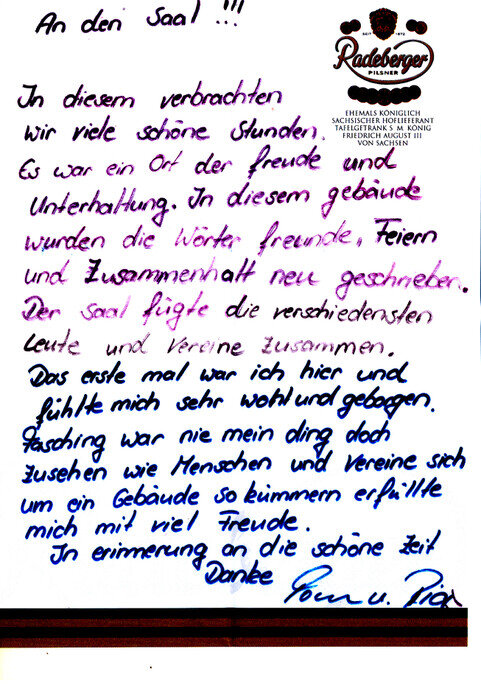 An den Saal !!!
SEIT 1872
Radeberger
PILSNER
EHEMALS KÖNIGLICH
SÄCHSISCHER HOFLIEFERANT
TAFELGETRÄNK S. M. KÖNIG
FRIEDRICH AUGUST III
VON SACHSEN
In diesem verbrachten
wir viele schöne Stunden.
Es war ein Ort der freude und
Unterhaltung. In diesem gebäude
wurden die Wörter freunde, Feiern
und Zusammenhalt neu geschrieben.
Der Saal fügte die verschiedensten
Leute und Vereine zusammen.
Das erste mal war ich hier und
fühlte mich sehr wohl und geborgen.
Fasching war nie mein ding doch
zusehen wie Menschen und Vereine sich
um ein Gebäude so kümmern erfüllte
mich mit viel Freude.
In erinnerung an die schöne Zeit
Danke
u.